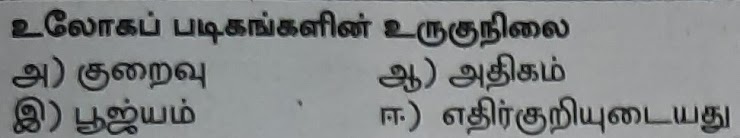 உலோகப் படிகங்களின் உருகுநிலை
அ) குறைவு ஆ) அதிகம்
இ) பூஜ்யம் ஈ) எதிர்குறியுடையது